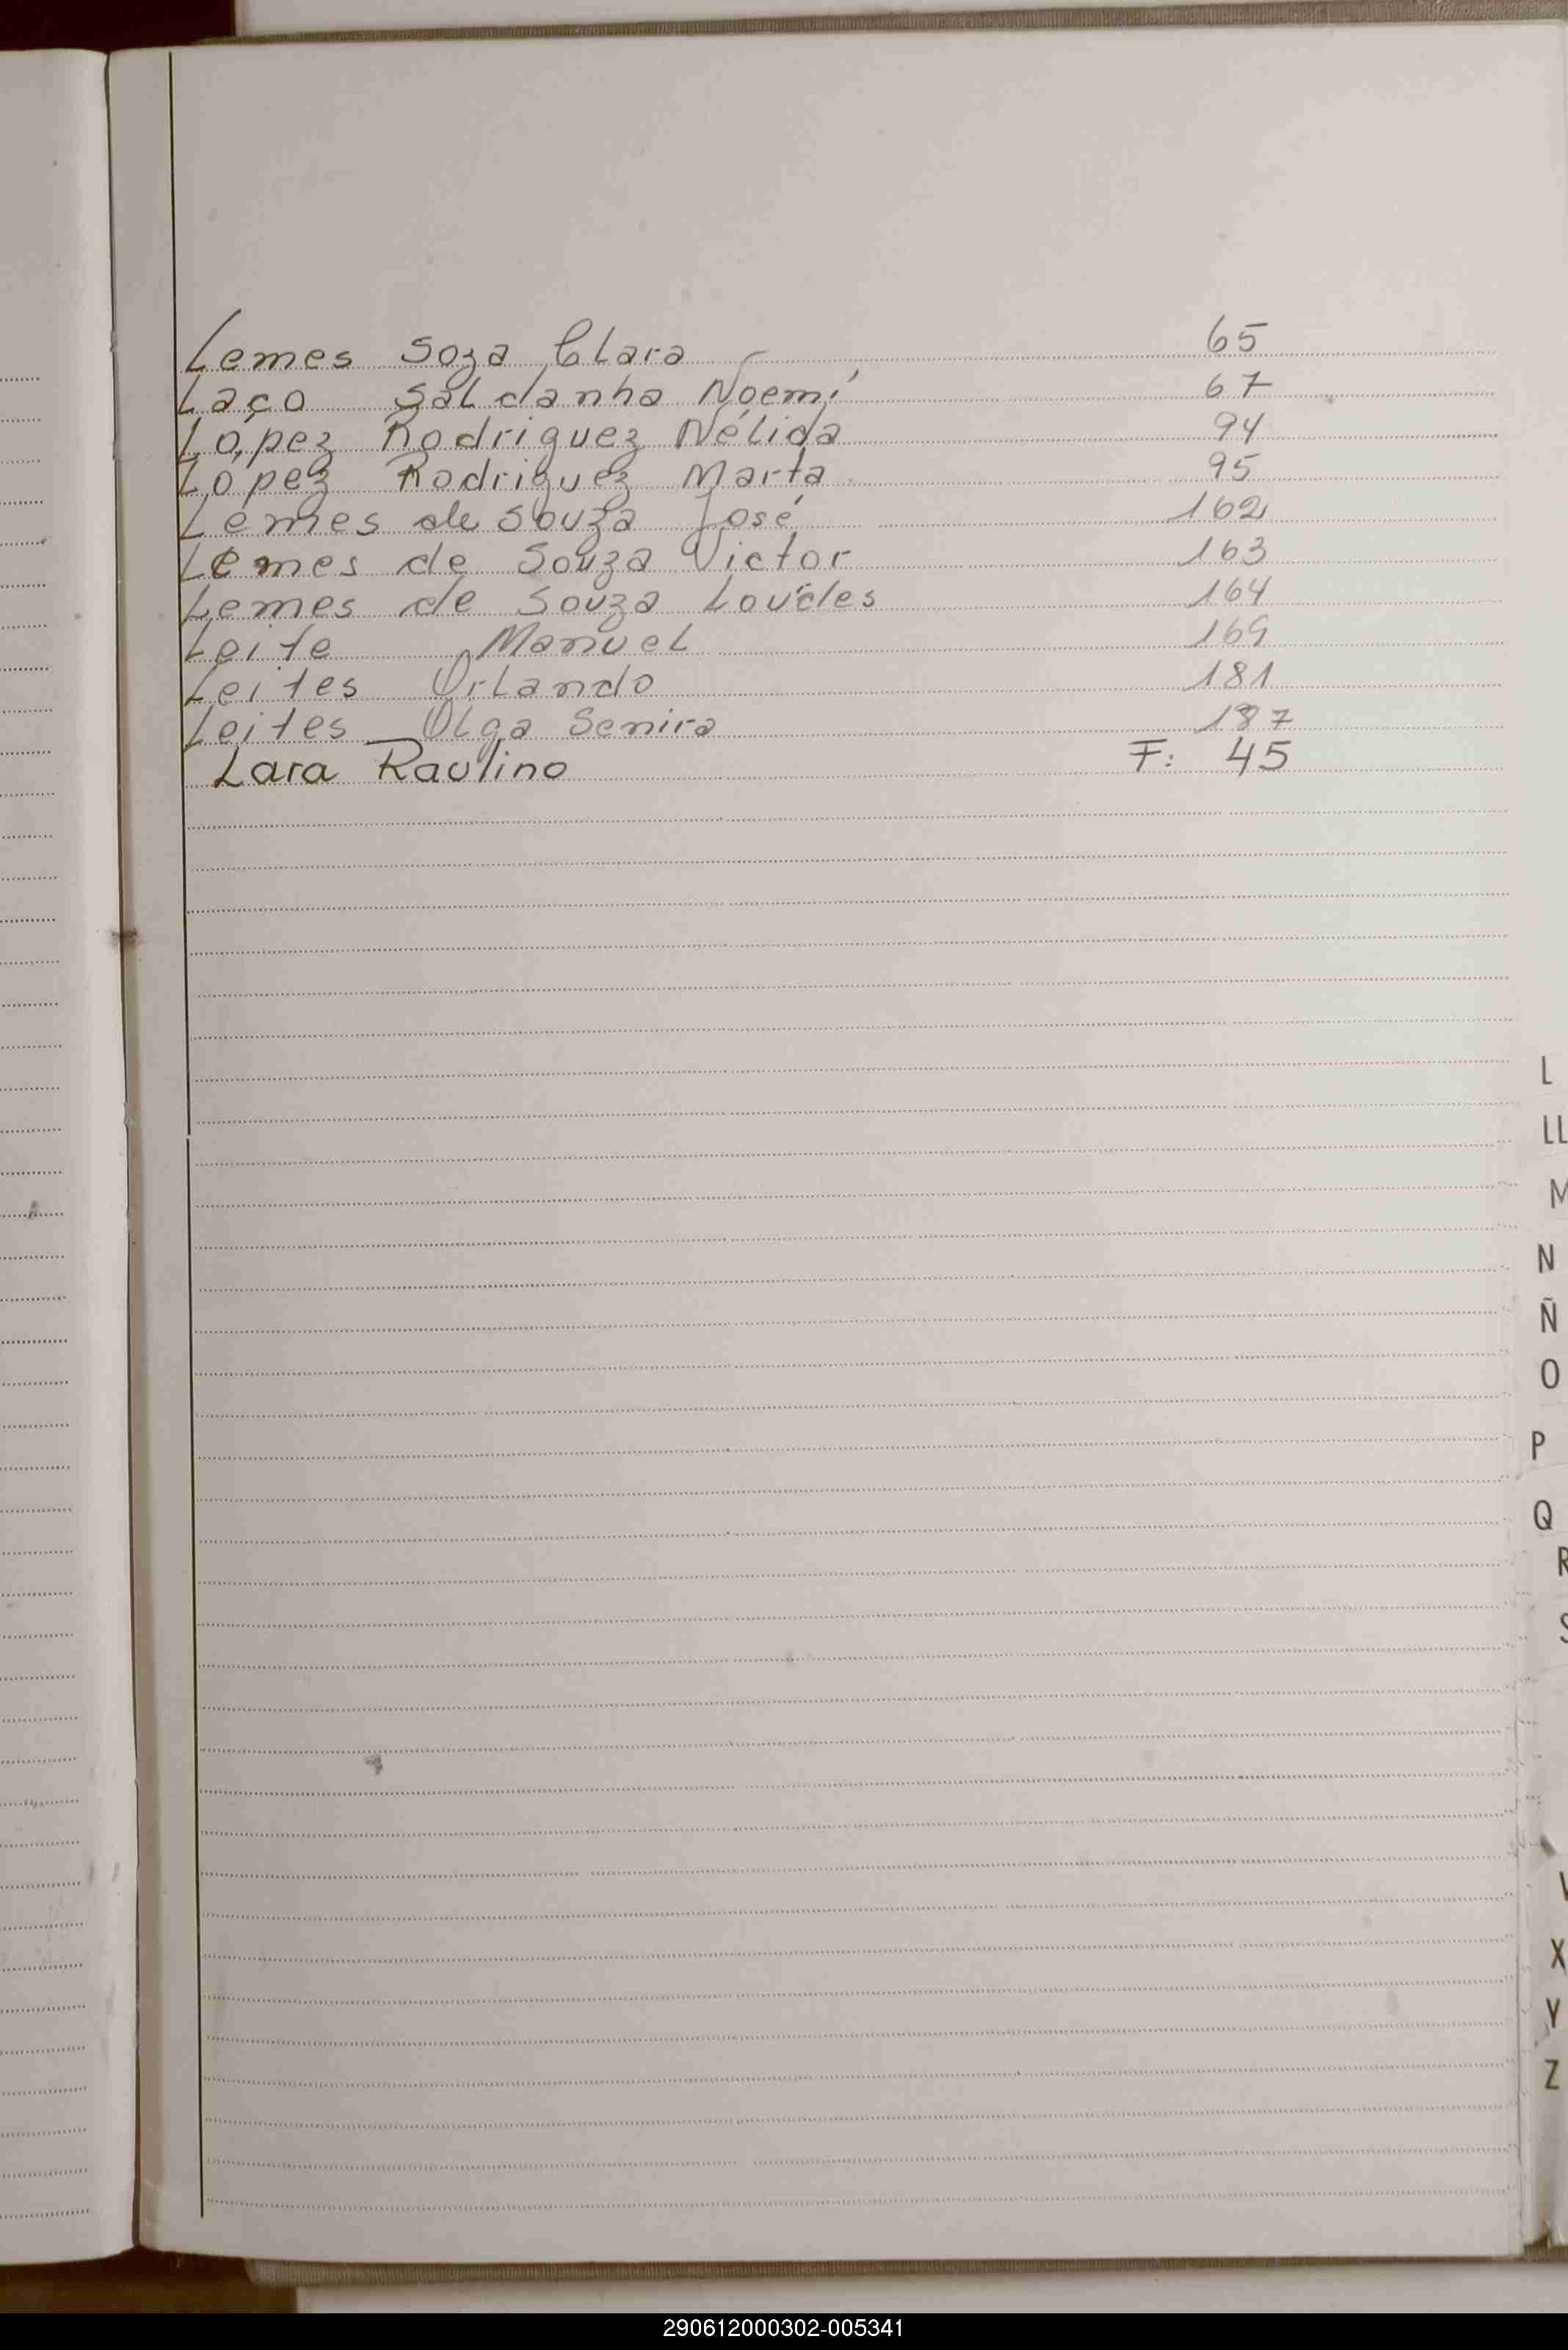 Lemes Soza Clara 65
Laço Saldanha Noemí 67
López Rodriguez Nélida 94
López Rodriguez Marta 95
Lemes de Souza José 162
Lemes de Souza Victor 163
Lemes de Souza Lourdes 164
Leite Manuel 169
Leites Orlando 181
Leites Olga Senira 187
Lara Raulino F: 45
L
LL
M
N
Ñ
O
P
Q
R
S
V
X
Y
Z
290612000302-005341